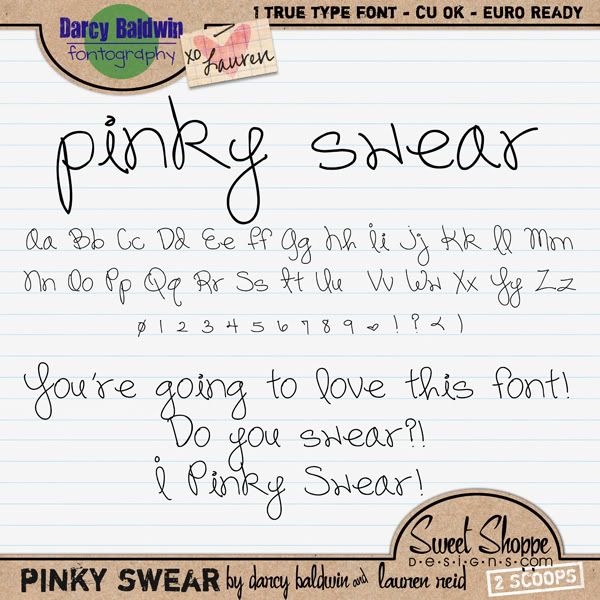 Darcy Baldwin
fontography
xo
Lauren
1 TRUE TYPE FONT - CU OK - EURO READY
pinky swear
Aa Bb Cc Dd Ee Ff Gg Hh Ii Jj Kk Ll Mm
Nn Oo Pp Qq Rr Ss Tt Uu Vv Ww Xx Yy Zz
0 1 2 3 4 5 6 7 8 9 ! ? < )
You're going to love this font!
Do you swear?!
I Pinky Swear!
Sweet Shoppe
Designs.com
PINKY SWEAR by darcy baldwin and lauren reid
2 SCOOPS